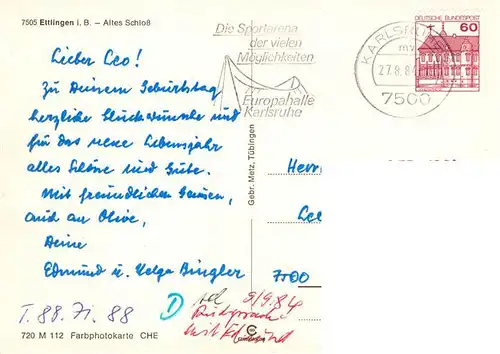 7505 Ettlingen i. B. – Altes Schloß
Die Sportarena
der vielen
Möglichkeiten
Europahalle
Karlsruhe
KARLSRUHE
mv
27.8.8
7500
DEUTSCHE BUNDESPOST
60
Lieber Leo!
Zu Deinem Geburtstag
herzliche Glückwünsche und
für das neue Lebensjahr
alles Schöne und Gute.
Mit freundlichen Grüssen,
auch an Olive,
Deine
Edmund u. Helga Bingler
Gebr. Metz, Tübingen
Herr
7500
T. 88. 71. 88
D
tel
5/9.84
720 M 112 Farbphotokarte CHE